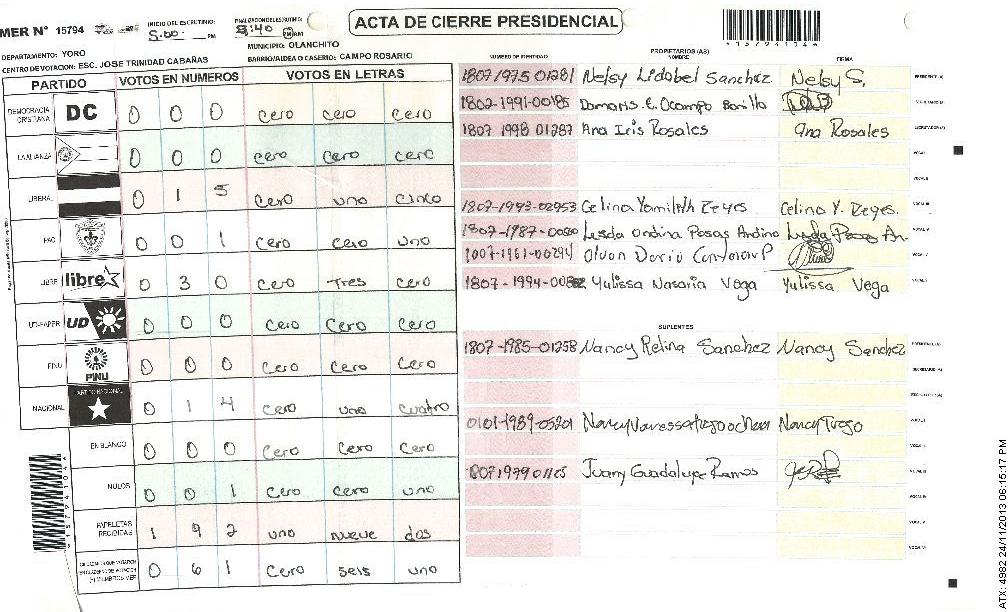 ACTA DE CIERRE PRESIDENCIAL
MER Nº 15794
INICIO DEL ESCRUTINIO: 5:00 PM
FINALIZACION DEL ESCRUTINIO: 8:40 PM AM
DEPARTAMENTO: YORO
MUNICIPIO: OLANCHITO
CENTRO DE VOTACION: ESC. JOSE TRINIDAD CABAÑAS
BARRIO/ALDEA O CASERIO: CAMPO ROSARIO
PARTIDO VOTOS EN NUMEROS VOTOS EN LETRAS
DEMOCRACIA CRISTIANA DC 0 0 0 cero cero cero
LA ALIANZA 0 0 0 cero cero cero
LIBERAL 0 1 5 cero uno cinco
PAC 0 0 1 cero cero uno
LIBRE libre 0 3 0 cero Tres cero
UD-FAPER UD 0 0 0 cero cero cero
PINU PINU 0 0 0 cero cero cero
NACIONAL 0 1 4 cero uno cuatro
EN BLANCO 0 0 0 cero cero cero
NULOS 0 0 1 cero cero uno
PAPELETAS RECIBIDAS 1 9 2 uno nueve dos
0 6 1 cero seis uno
NUMERO DE IDENTIDAD PROPIETARIOS (AS) NOMBRE FIRMA
1807 1975 01281 Nelsy Lidabel Sanchez Nelsy S. PRESIDENTE (A)
1802-1991-00185 Damaris E. Ocampo Bonilla SECRETARIO (A)
1807 1998 01287 Ana Iris Rosales Ana Rosales ESCRUTADOR (A)
VOCAL I
VOCAL II
1807-1993-02953 Celina Yamileth Reyes Celina Y. Reyes. VOCAL III
1807-1987-00 Lesda Ondina Posas Andino Lesda Posas An.
1807-1961-00294 Olvan Dario
1807-1994-00 Yulissa Nasaria Vega Yulissa Vega
SUPLENTES
1807-1985-01258 Nancy Relina Sanchez Nancy Sanchez PRESIDENTE (A)
SECRETARIO (A)
ESCRUTADOR (A)
0101-1989-05201 Nancy Vanessa Trejo Ochoa Nancy Trejo VOCAL I
VOCAL II
1807 1979 01165 Juany Guadalupe Ramos VOCAL III
VOCAL IV
VOCAL V
VOCAL VI
*15794104*
ATX: 4982 24/11/2013 06:15:17 PM